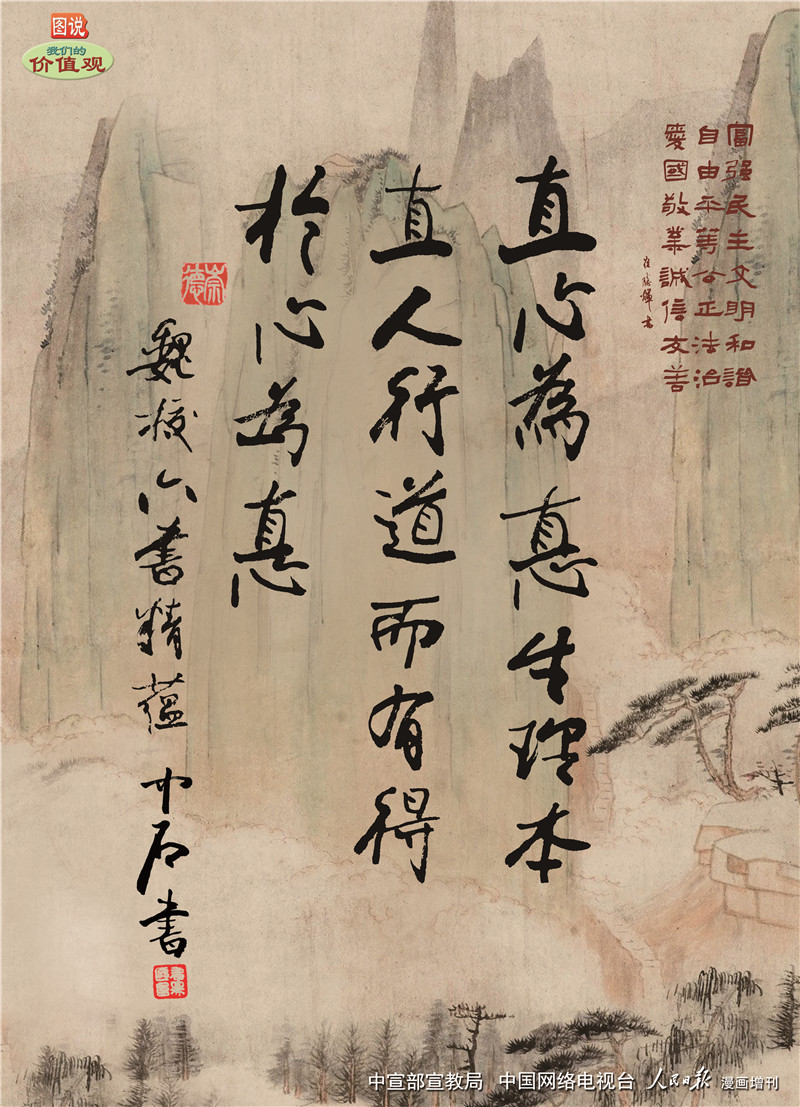 图说
我们的
价值观
富强民主文明和谐
自由平等公正法治
爱國敬業誠信友善
直心為惪生理本
直人行道而有得
於心为惪
崇德
魏校六書精蘊 中石书
中宣部宣教局 中国网络电视台 人民日报 漫画增刊